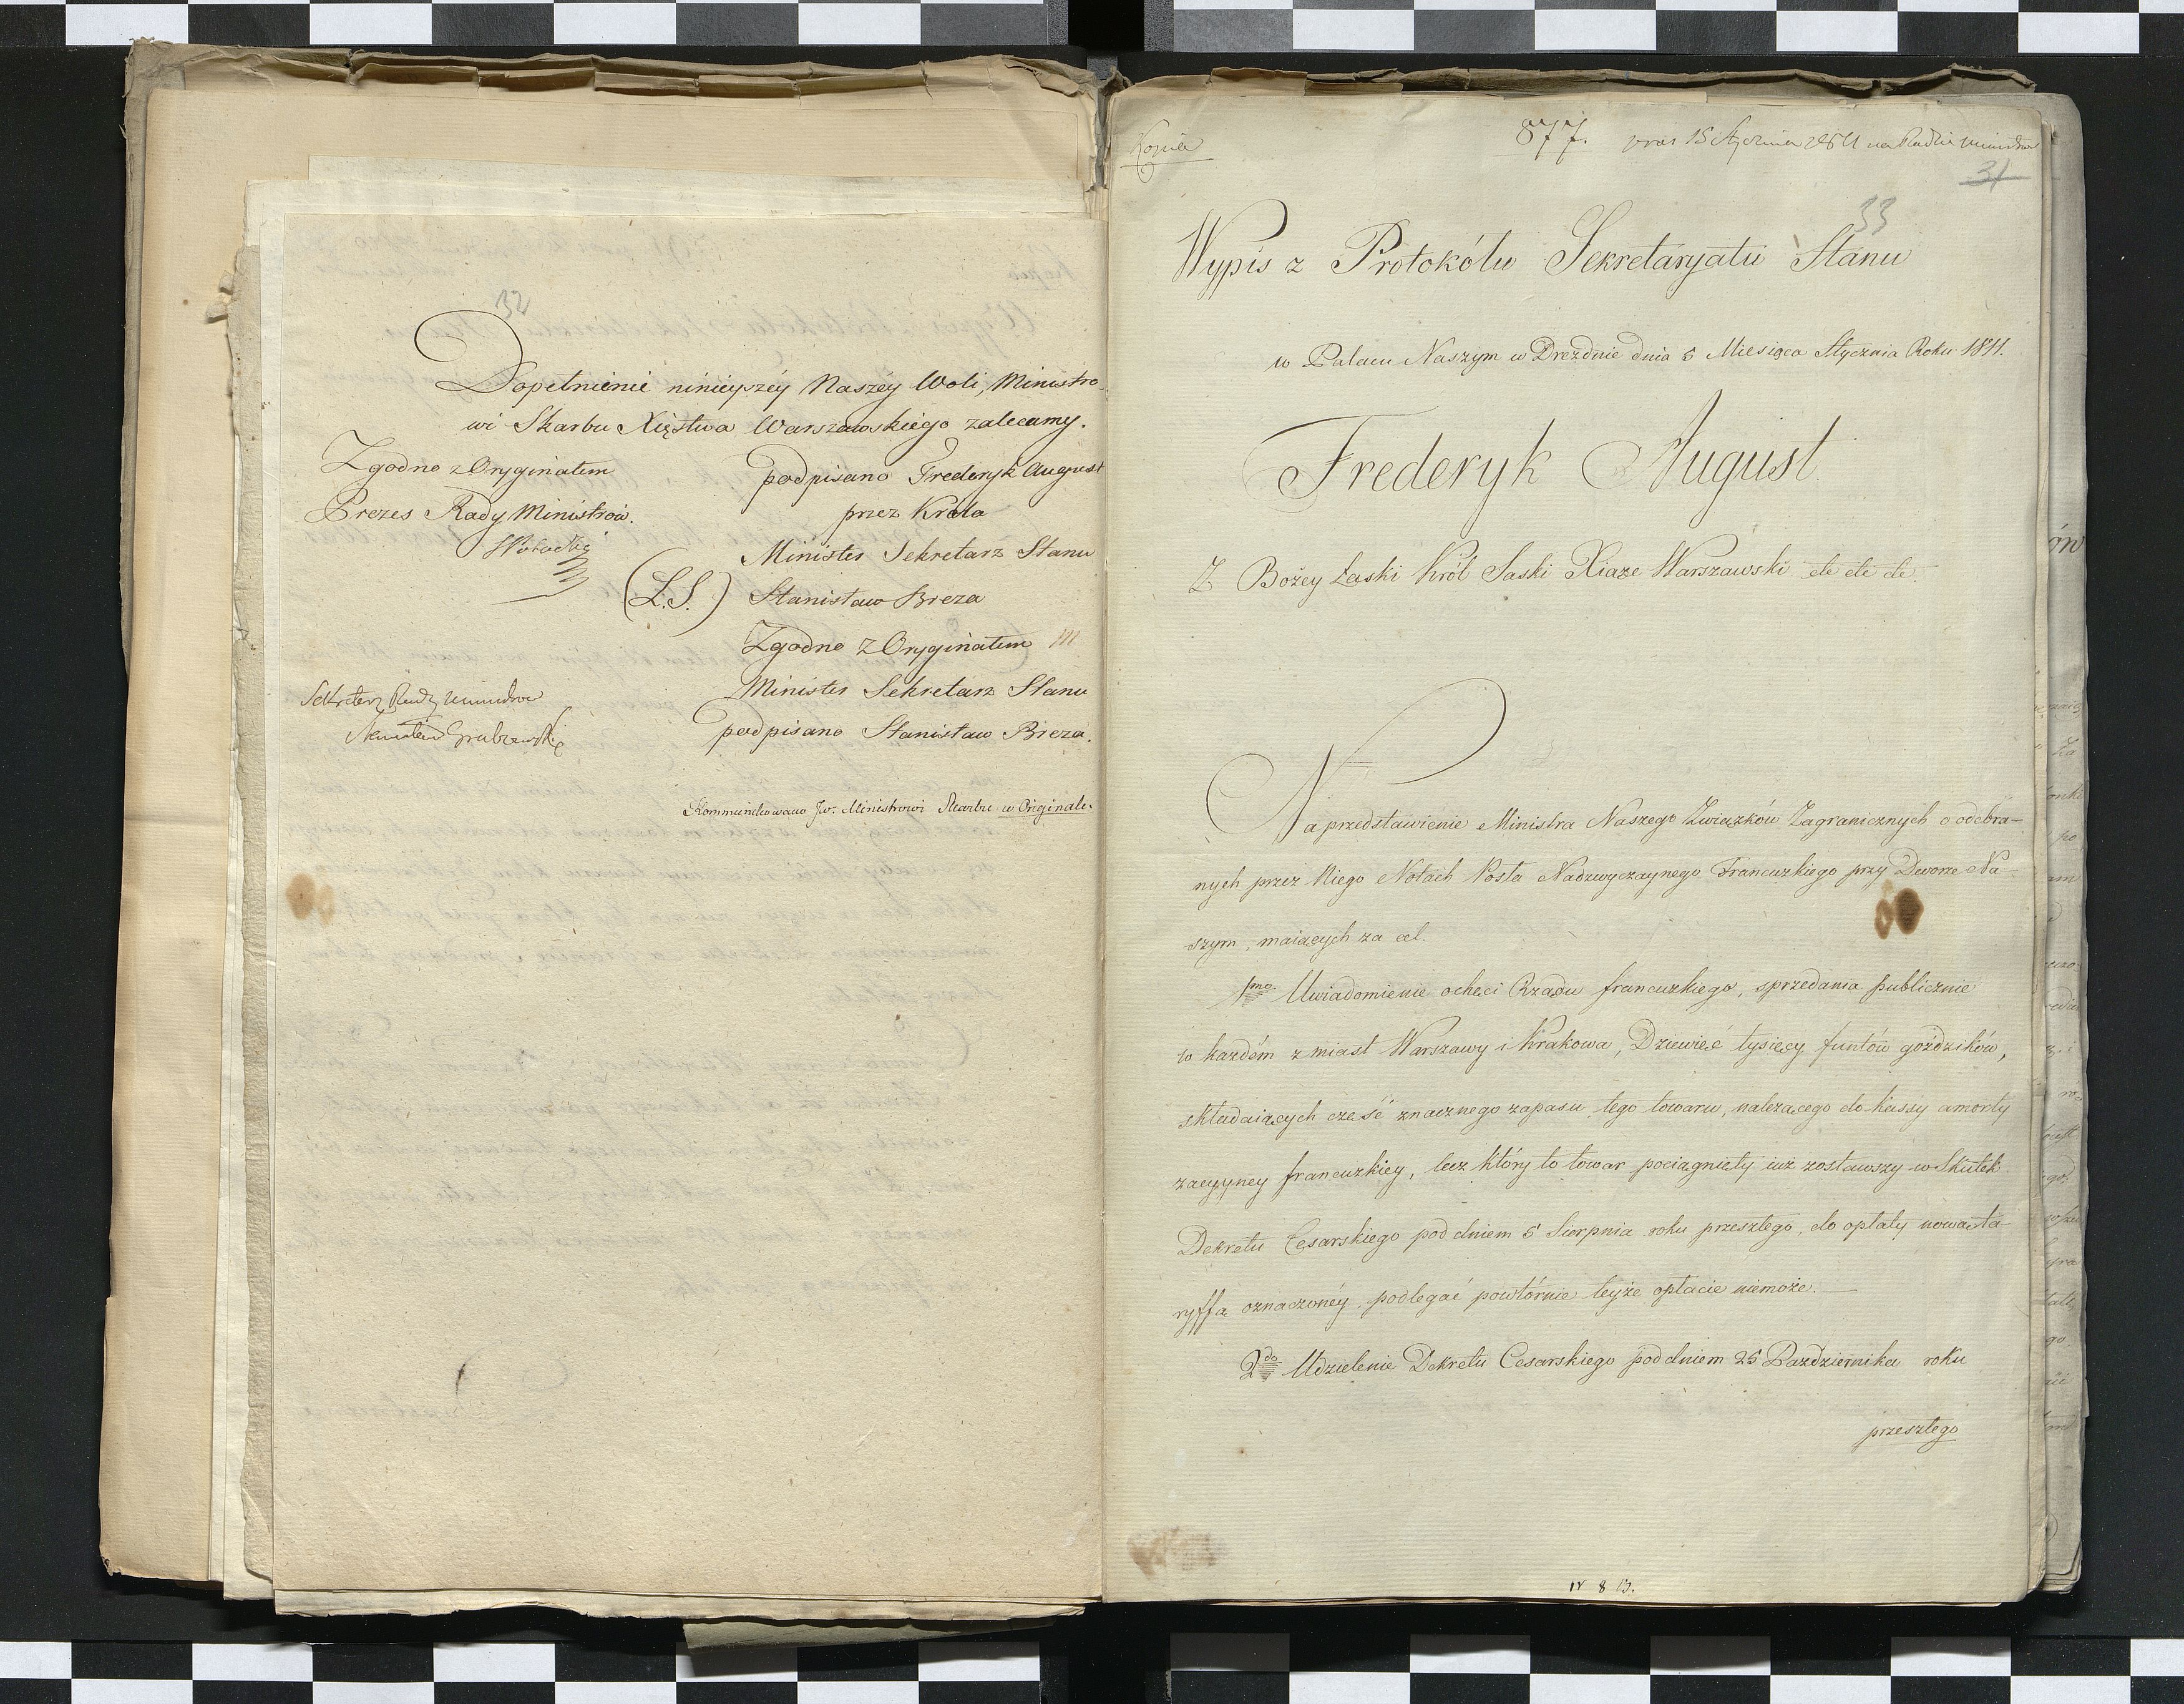 32
Dopełnienie ninieyszéy Naszéy Woli, Ministro-
wi Skarbu Xięstwa Warszawskiego zalecamy.
Zgodno z Oryginałem
Prezes Rady Ministrów.
podpisano Frederyk August
przez Króla
Minister Sekretarz Stanu
(L.S.) Stanisław Breza
Zgodno z Oryginałem
Minister Sekretarz Stanu
podpisano Stanisław Breza.
Sekretarz Rady Ministrów
Grabowski
Kommunikowano Jw. Ministrowi Skarbu w Originale.
Kopia
877. 15 Stycznia 1811 na Radzie Ministrów
31
33
Wypis z Protokółu Sekretaryatu Stanu
w Pałacu Naszym w Dreźdnie dnia 5 Miesiąca Stycznia Roku 1811.
Frederyk August.
Z Bożey Łaski Król Saski Xiąże Warszawski etc etc etc.
Na przedstawienie Ministra Naszego Związków Zagranicznych o odebra-
nych przez Niego Notach Posła Nadzwyczaynego Francuzkiego przy Dworze Na-
szym, maiących za cel.
1mo. Uwiadomienie o chęci Rządu francuzkiego, sprzedania publicznie
w każdém z miast Warszawy i Krakowa, Dziewięć tysięcy funtów goździków,
składaiących część znacznego zapasu tego towaru, należącego do kassy amorty
zacyyney francuzkiey, lecz który to towar pociągnięty iuż zostawszy w Skutek
Dekretu Cesarskiego pod dniem 5 Sierpnia roku przeszłego, do opłaty nową ta-
ryffą oznaczonéy, podlegać powtórnie teyże opłacie niemoże.
2do Udzielenie Dekretu Cesarskiego pod dniem 25 Października roku
przeszłego